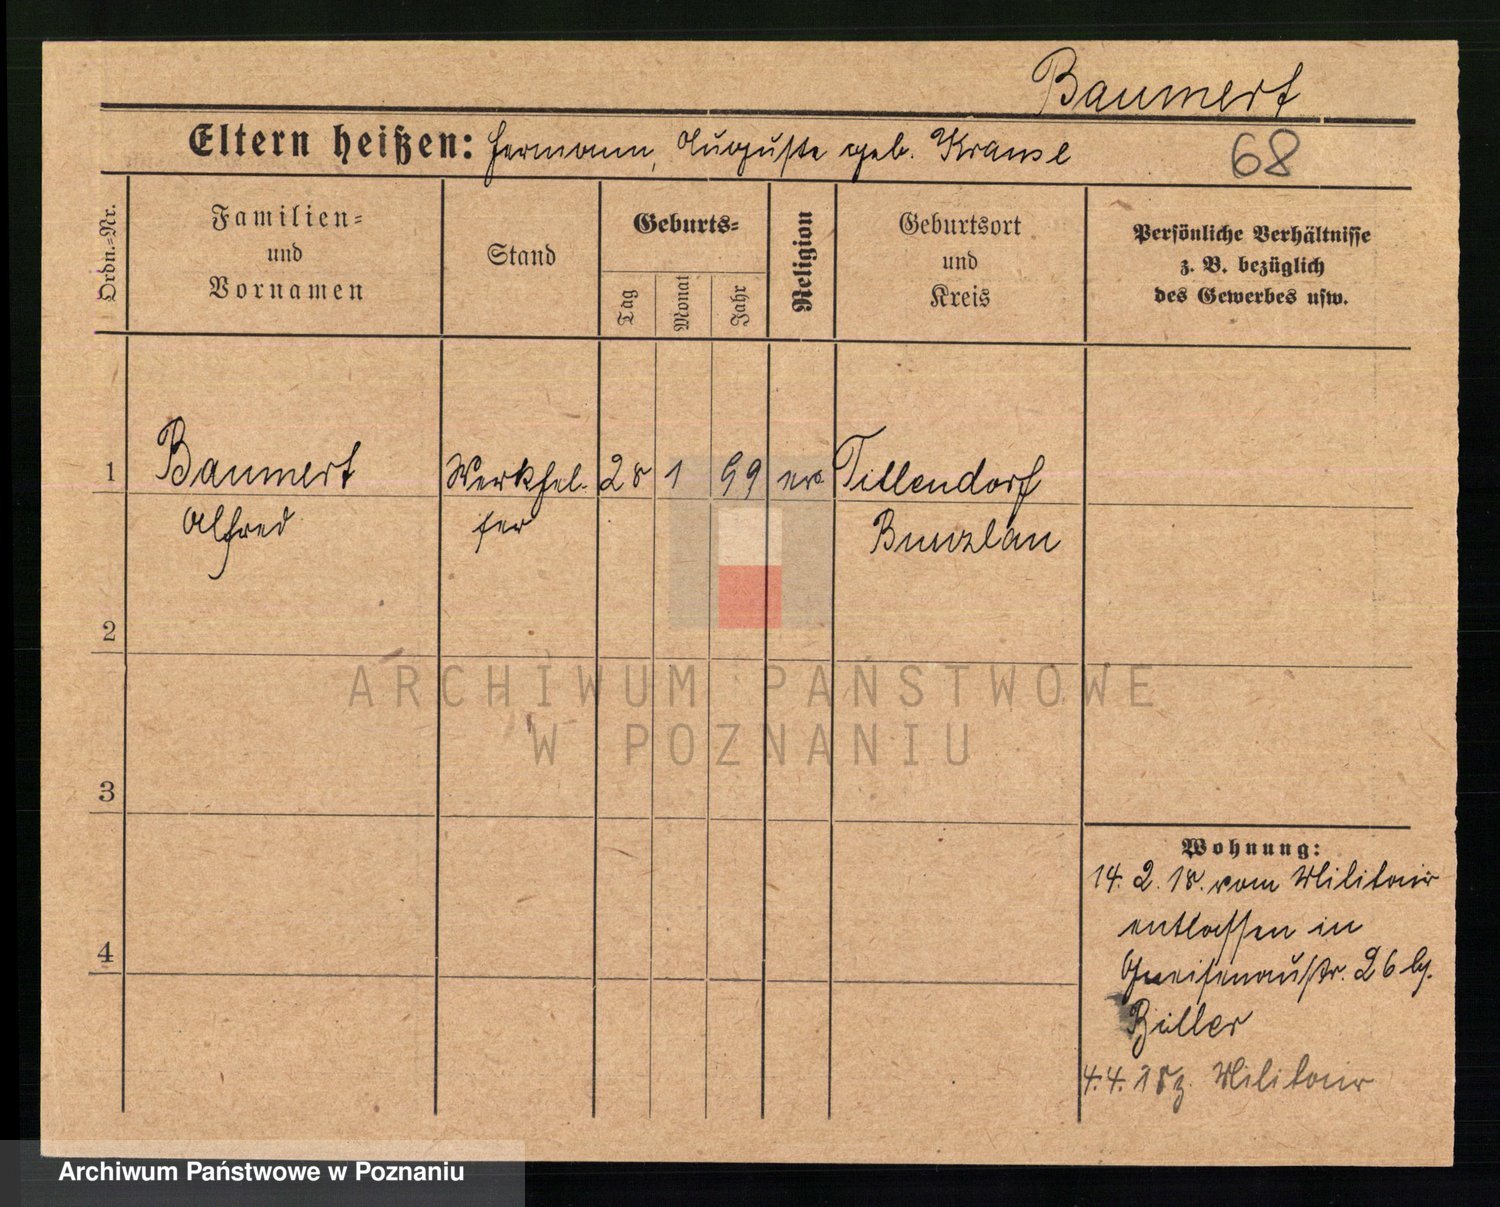 Baumert
Eltern heißen: Hermann, Auguste geb. Krause
68
Ordn.=Nr.
Familien=
und
Vornamen
Stand
Geburts=
Tag
Monat
Jahr
Religion
Geburtsort
und
Kreis
Persönliche Verhältnisse
z. B. bezüglich
des Gewerbes usw.
1 Baumert Werkhel- 28 1 99 ev. Tillendorf
Alfred fer Bunzlau
2
3
4
Wohnung:
14. 2. 18. vom Militair
entlassen in
Gneisenaustr. 26 b/.
Biller
4. 4. 18 z. Militair
ARCHIWUM PAŃSTWOWE
W POZNANIU
Archiwum Państwowe w Poznaniu